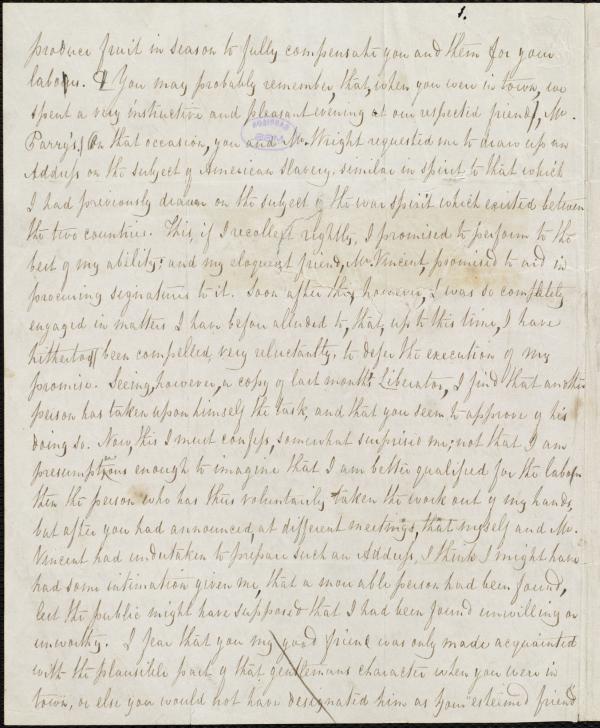 1.
produce fruit in season to fully compensate you and them for your
labours. You may probably remember, that, when you were in town, we
spent a very instructive and pleasant evening at our respected friend, Mr.
Parry's. On that occasion, you and Mr. Wright requested me to draw up an
Address on the subject of American Slavery, similar in spirit to that which
I had previously drawn on the subject of the war spirit which existed between
the two countries. This, if I recollect rightly, I promised to perform to the
best of my ability; and my eloquent friend, Mr. Vincent, promised to aid in
procuring signatures to it. Soon after this, however, I was so completely
engaged in matters I have before alluded to, that, up to this time, I have
hitherto been compelled, very reluctantly, to defer the execution of my
promise. Seeing, however, a copy of last month's Liberator, I find that another
person has taken upon himself the task, and that you seem to approve of his
doing so. Now, this I must confess, somewhat surprised me; not that I am
presumptuous enough to imagine that I am better qualified for the labour
than the person who has thus voluntarily taken the work out of my hands,
but after you had announced, at different meetings, that myself and Mr.
Vincent had undertaken to prepare such an Address, I think I might have
had some intimation given me, that a more able person had been found,
lest the public might have supposed that I had been found unwilling or
unworthy. I fear that you my good friend was only made acquainted
with the plausible part of that gentlemans character when you were in
town, or else you would not have designated him as your esteemed friend